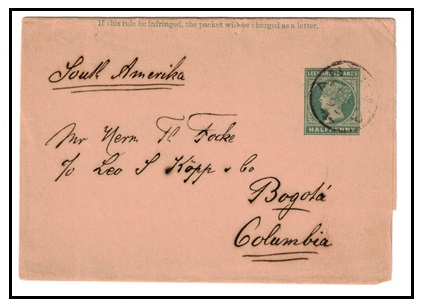 If this rule be infringed, the packet will be charged as a letter.
South Amerika
LEEWARD ISLANDS
HALFPENNY
Mr Herm. Th Focke
c/o Leo S Köpp & Co
Bogotá
Columbia